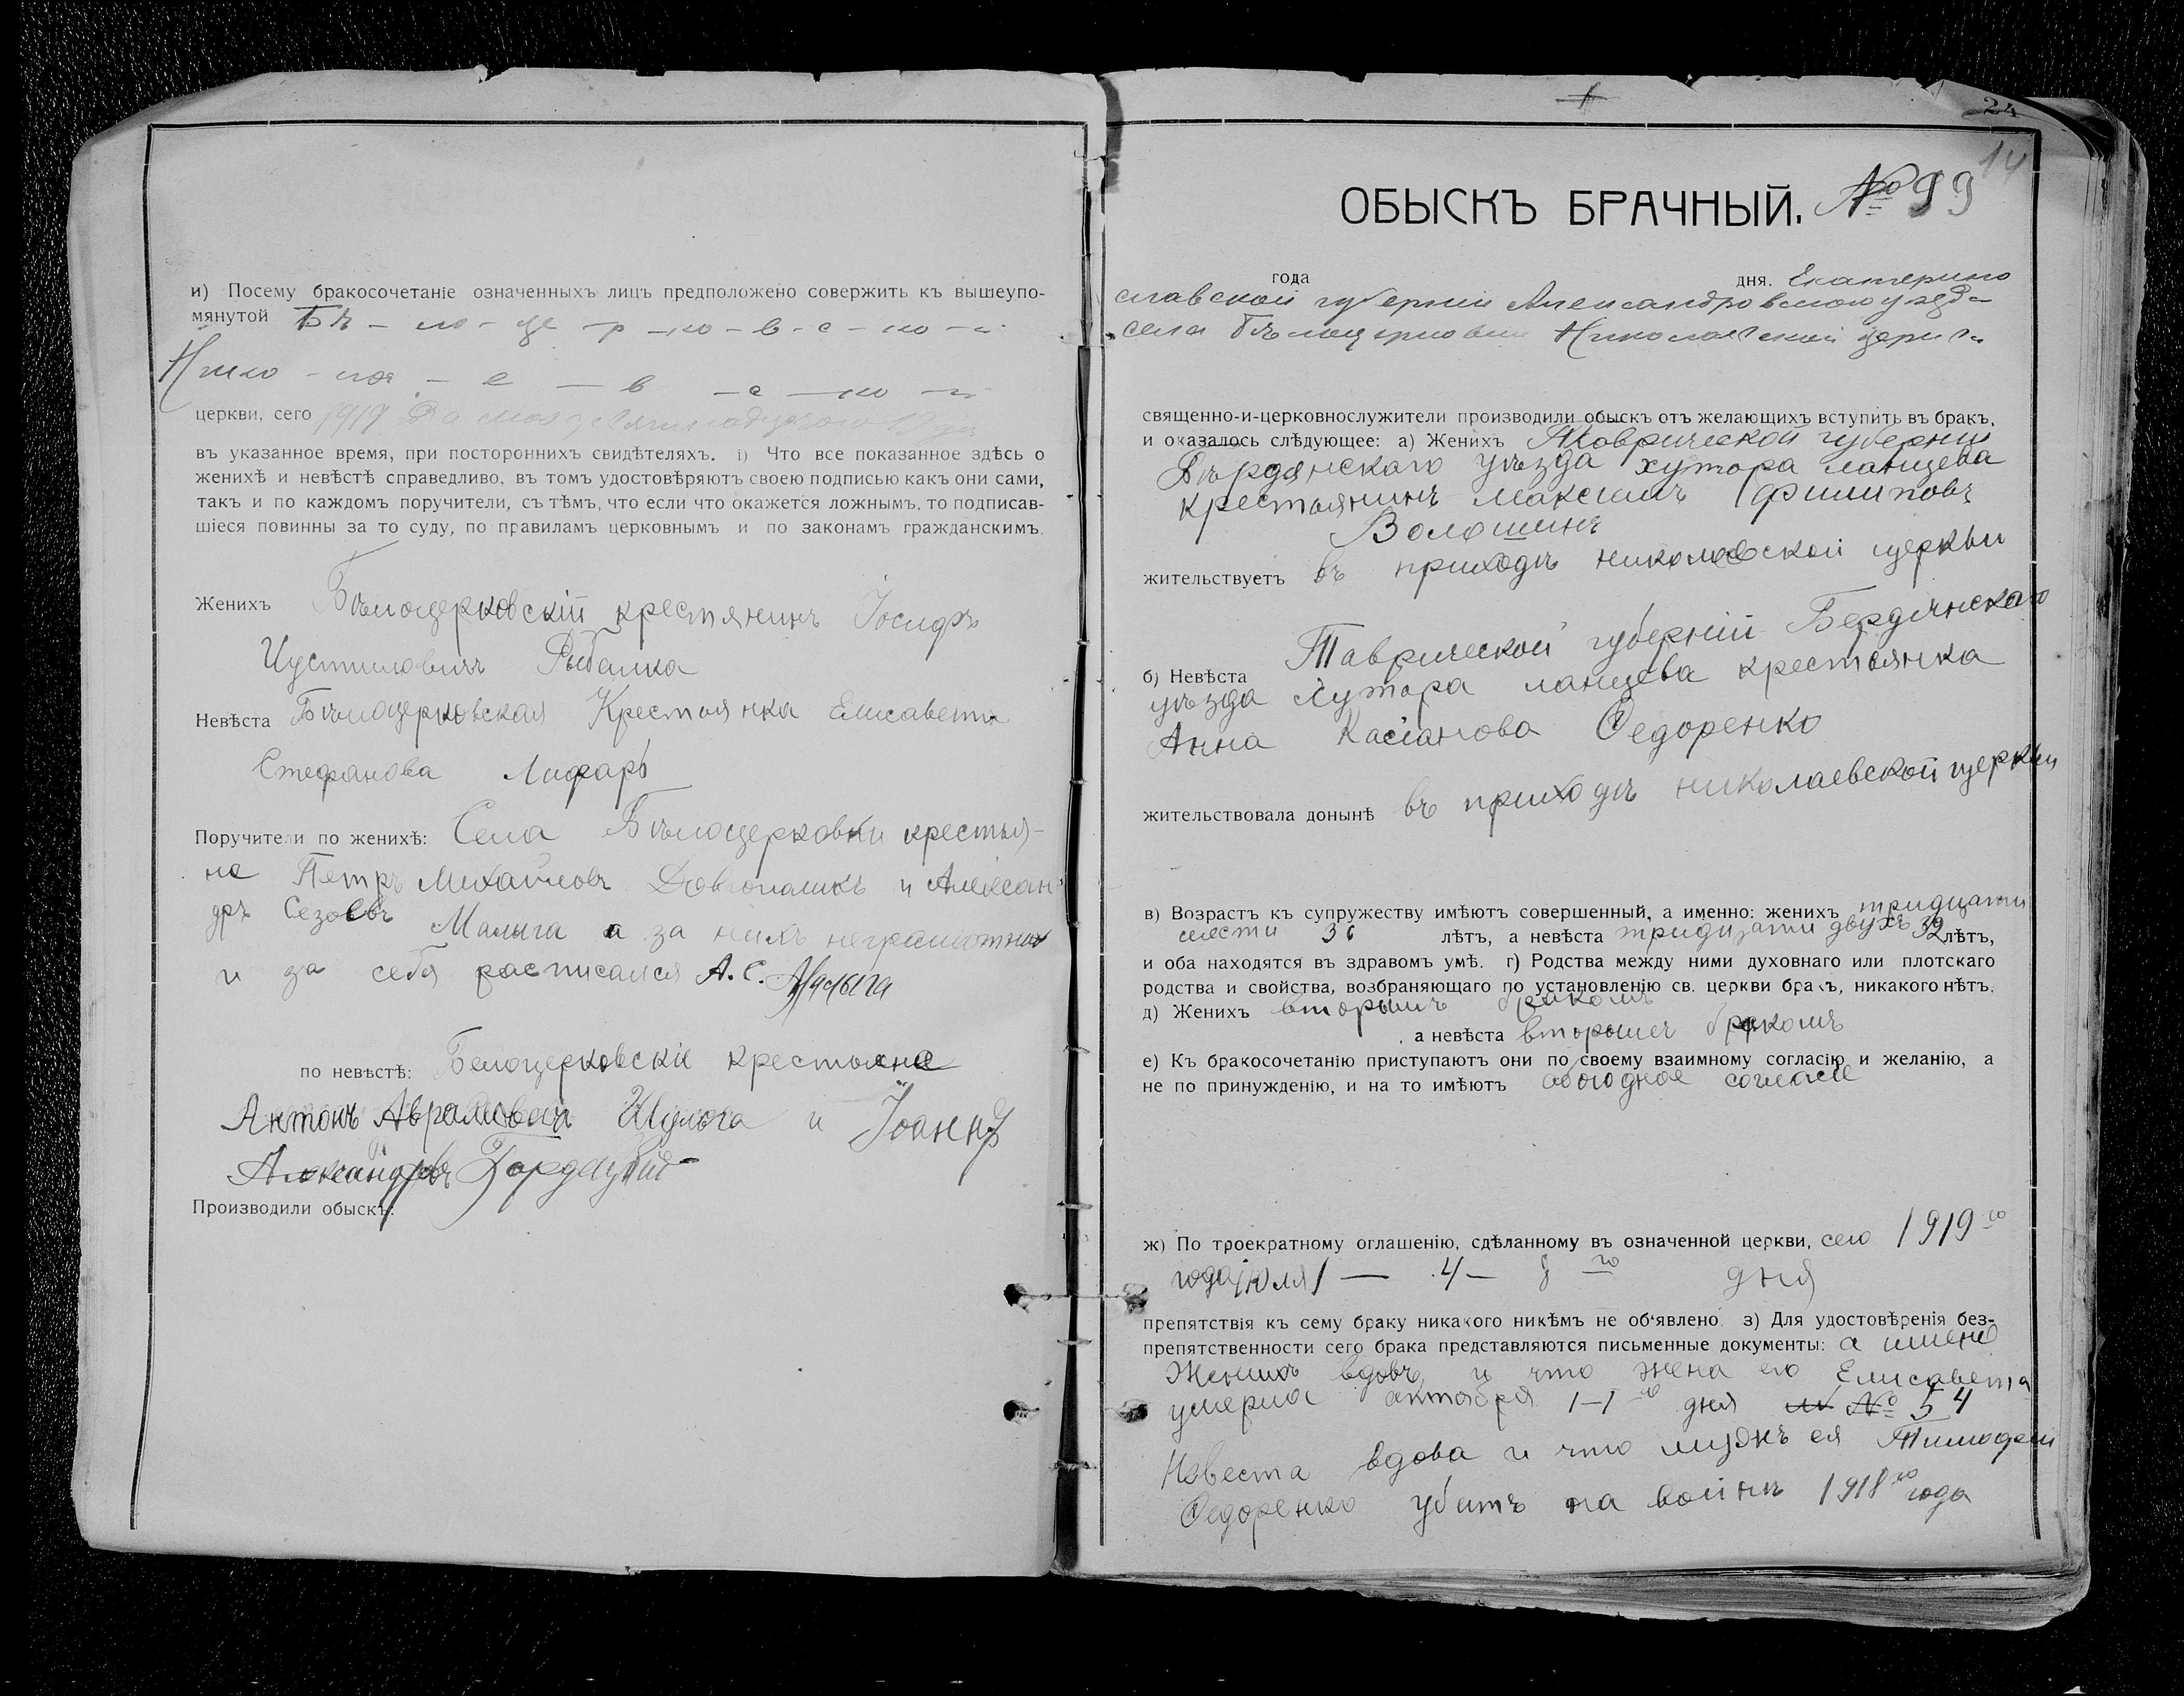 и) Посему бракосочетаніе означенныхъ лицъ предположено совержить къ вышеупо-
мянутой Бѣ - ло - це - р - ко - в - с - ко - й
Нико - ла - е - в - с - ко - й
церкви, сего 1919
въ указанное время, при постороннихъ свидѣтеляхъ. і) Что все показанное здѣсь о
женихѣ и невѣстѣ справедливо, въ томъ удостовѣряютъ своею подписью какъ они сами,
такъ и по каждомъ поручители, съ тѣмъ, что если что окажется ложнымъ, то подписав-
шіеся повинны за то суду, по правиламъ церковнымъ и по законамъ гражданскимъ.
Женихъ Бѣлоцерковскій крестянинъ Іосифъ
Рыбалка
Невѣста Бѣлоцерковская Крестьянка Елисавета
Стефанова Лифарь
Поручители по женихѣ: Села Бѣлоцерковки крестья-
не Петръ Михайловъ и Алексан-
дръ Малыга а за нихъ неграмотныхъ
и за себя расписался А. С. Малыга
по невѣстѣ: Белоцерковскіе крестьяне
Антонъ Аврамовичъ Шульга и Іоаннъ
Александровъ
Производили обыскъ:
24
14
ОБЫСКЪ БРАЧНЫЙ. № 99
года дня. Екатерино
славской губерніи Александровскою уѣзд-
села Бѣлоцерковки Николаевской церкви
священно-и-церковнослужители производили обыскъ отъ желающихъ вступить въ бракъ,
и оказалось слѣдующее: а) Женихъ Таврической губерніи
Бѣрдянскаго уѣзда хутора ланцева
крестьянинъ Максимъ Филиповъ
Волошинъ
жительствуетъ въ приходѣ николаевской церкви
Таврической губерніи Бердянскаго
б) Невѣста
уѣзда Хутора ланцева крестьянка
Анна Касіанова Федоренко
жительствовала донынѣ въ приходѣ николаевской церкви
в) Возрастъ къ супружеству имѣютъ совершенный, а именно: женихъ тридцати
шести 36 лѣтъ, а невѣста тридцати двухъ 32 лѣтъ,
и оба находятся въ здравомъ умѣ. г) Родства между ними духовнаго или плотскаго
родства и свойства, возбраняющаго по установленію св. церкви бракъ, никакого нѣтъ.
д) Женихъ вторымъ бракомъ
, а невѣста вторымъ бракомъ
е) Къ бракосочетанію приступаютъ они по своему взаимному согласію и желанію, а
не по принужденію, и на то имѣютъ обоюдное согласіе
ж) По троекратному оглашенію, сдѣланному въ означенной церкви, сего 1919 го
года іюля 1 — 4 — 8 го дня
препятствія къ сему браку никакого никѣмъ не об‘явлено. з) Для удостовѣренія без-
препятственности сего брака представляются письменные документы: а имено
Женихъ вдовъ, и что жена его Елисавета
умерла октября 1-1 го дня № 54
Невеста вдова и что мужъ ея Тимофей
Федоренко убитъ на войнѣ 1918 го года